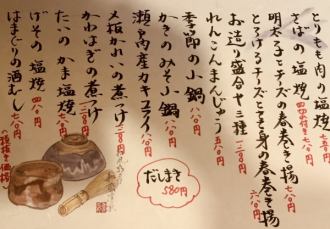 とりもも肉の塩焼 七五〇円
さばの塩焼 七八〇円
明太子とチーズの春巻き揚
とろけるチーズとエビすり身の春巻き揚 六八〇円
お造り盛合せ三種 一二八〇円
れんこんまんじゅう 五八〇円
季節の小鍋 八八〇円
かきのみそ小鍋 八八〇円
瀬戸内産カキフライ 八八〇円
メ板かれいの煮つけ
かわはぎの煮つけ 一二八〇円
たいのかま塩焼 七八〇円
げその塩焼 四八〇円
はまぐりの酒むし 七八〇円
だしまき
580円
(税抜き価格)